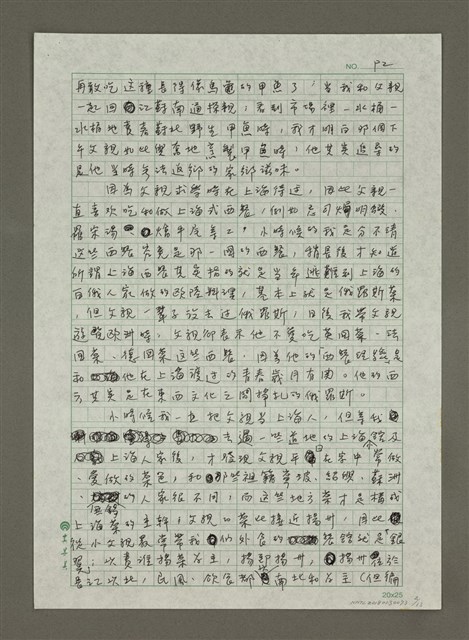 NO. P2
再敢吃這種長得像烏龜的甲魚了,當我和父親
一起回江蘇南通探親,看到市場裡一水桶一
水桶地賣喜蘇北野生甲魚時,我才明白那個下
午父親如此興奮地烹製甲魚時,他其實追尋的
是他當時無法返鄉的家鄉滋味。
因為父親求學時在上海待過,因此父親一
直喜歡吃和做上海式西餐,例如启司焗明蝦、
羅宋湯、焗牛尾等,小時候的我是分不清
這些西餐究竟是那一國的西餐,稍長後才知道
所謂上海西餐其實指的就是當年逃難到上海的
白俄人家做的歐陸料理,基本上就是俄羅斯菜
,但父親一輩子沒去過俄羅斯,日後我帶父親
遊歷歐洲時,父親卻看來他不愛吃英國菜、法
國菜、德國菜這些西餐,因為他的西餐經驗是
和他在上海渡過的青春歲月有關。他的西
方其實是在東西文化之間掙扎的俄羅斯。
小時候我一直把父親當上海人,但等我
去過一些道地的上海館及
上海人家後,才發現父親平日在家中常做
、愛做的菜色,和那些祖籍寧波、紹興、蘇州
的人家很不同,而這些地方菜才是構成
上海菜的主幹;父親的菜比較接近揚州,因此
從小父親最常帶我們外食的餐館就是銀
翼,以賣淮揚菜為主,揚即揚州,揚州在於
長江以北,民風、飲食都南北和為主(但偏
20x25